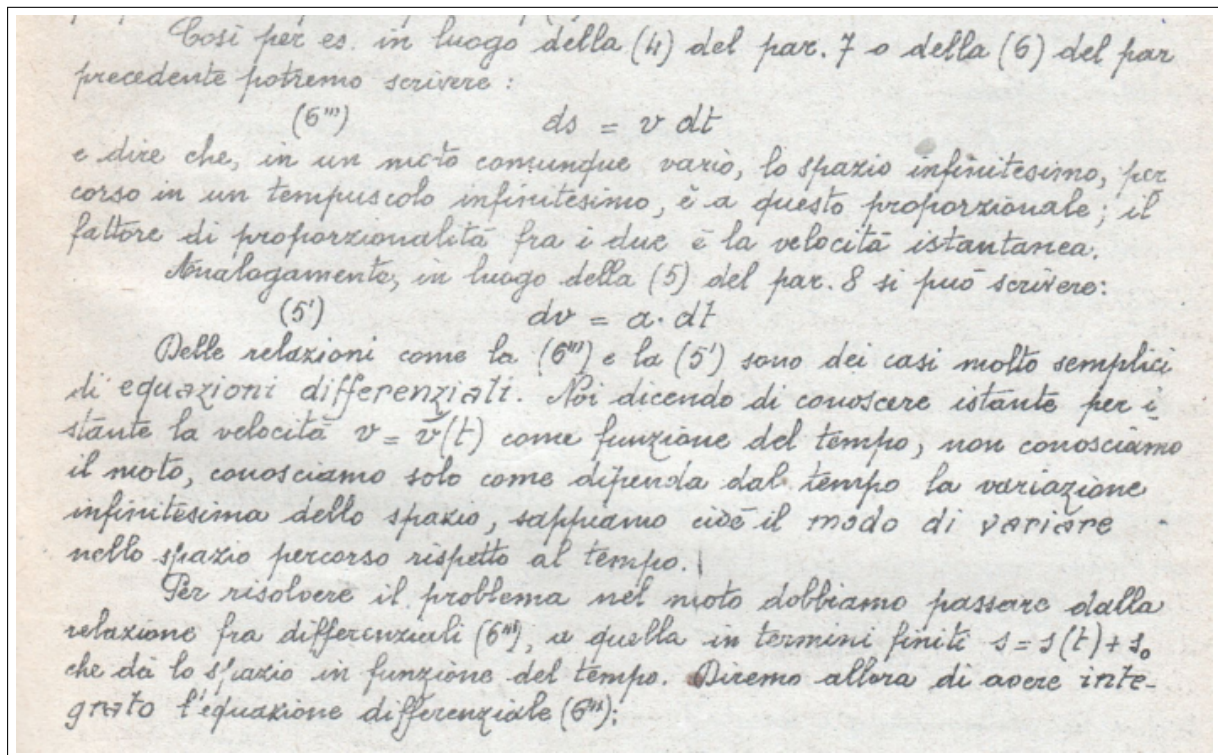 Così per es. in luogo della (4) del par. 7 o della (6) del par
precedente potremo scrivere :
(6''') ds = v dt
e dire che, in un moto comunque vario, lo spazio infinitesimo, per
corso in un tempuscolo infinitesimo, è a questo proporzionale; il
fattore di proporzionalità fra i due è la velocità istantanea.
Analogamente, in luogo della (5) del par. 8 si può scrivere:
(5') dv = a· dt
Delle relazioni come la (6''') e la (5') sono dei casi molto semplici
di equazioni differenziali. Noi dicendo di conoscere istante per i
stante la velocità v = v(t) come funzione del tempo, non conosciamo
il moto, conosciamo solo come dipenda dal tempo la variazione
infinitesima dello spazio, sappiamo cioè il modo di variare
nello spazio percorso rispetto al tempo.
Per risolvere il problema nel moto dobbiamo passare dalla
relazione fra differenziali (6'''), a quella in termini finiti s = s(t) + s₀
che dà lo spazio in funzione del tempo. Diremo allora di avere inte-
grato l'equazione differenziale (6''');